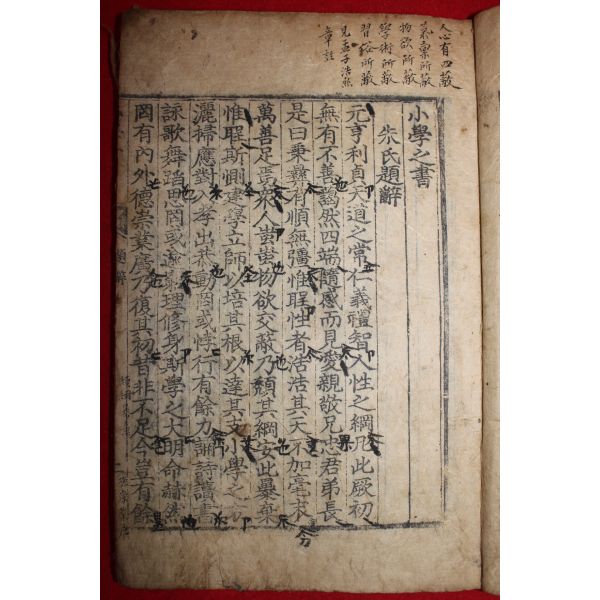 人心有四蔽
氣禀所蔽
物欲所蔽
學術所蔽
習俗所蔽
見孟子浩然
章註
小學之書
朱氏題辭
元亨利貞天道之常仁義禮智人性之綱凡此厥初
無有不善藹然四端隨感而見愛親敬兄忠君弟長
是曰秉彛有順無彊惟聖性者浩浩其天不加毫末
萬善足焉衆人蚩蚩物欲交蔽乃頹其綱安此暴棄
惟聖斯惻建學立師以培其根以達其支小學之方
灑掃應對入孝出恭動罔或悖行有餘力誦詩讀書
詠歌舞蹈思罔或逾窮理修身斯學之大明命赫然
罔有內外德崇業廣乃復其初昔非不足今豈有餘
題辭